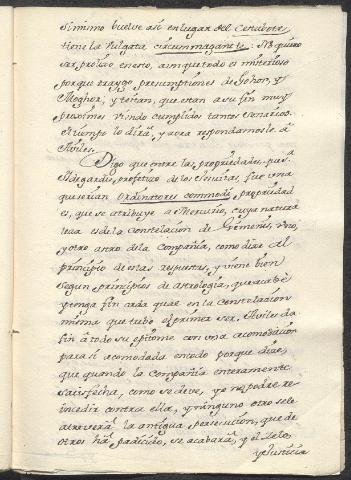 simismo buelve así en lugar del
tiene la Vulgata circunmagante: No quiero
ser prolixo en esto, aunque todo es misterioso
porque traygo presumptiones de Gehor, y
Meghor, y Teitan, que estan a su fin muy
proximos viendo cumplidos tantos senarios.
El tiempo lo dirà, y aora respondamosle à
Aviles.
Digo que entre las propriedades, que Sta.
Ildegardis, profetizo de los Jesuitas, fue una
que serian Ordinatores commodi, propriedad
es, que se atribuye a Mercurio, cuya natura
leza es de la Constelacion de Geminis, uno,
y otro astro de la Compañia, como dixe al
principio de esta respuesta, y viene bien
segun principios de astrologia, que acabe
y tenga fin cada qual en la constelacion
misma que tubo el primer ser, Aviles da
fin à todo su epitome con una acomodacion
para si acomodada en todo porque dice,
que quando la Compañia enteramente
satisfecha, como se deve, ya no podrè re-
incidir contra ella, y ninguno otro se le
atreverà la antigua persecucion, que de
otros hà padicido, se acabarà, y el Zelo,
y Justicia